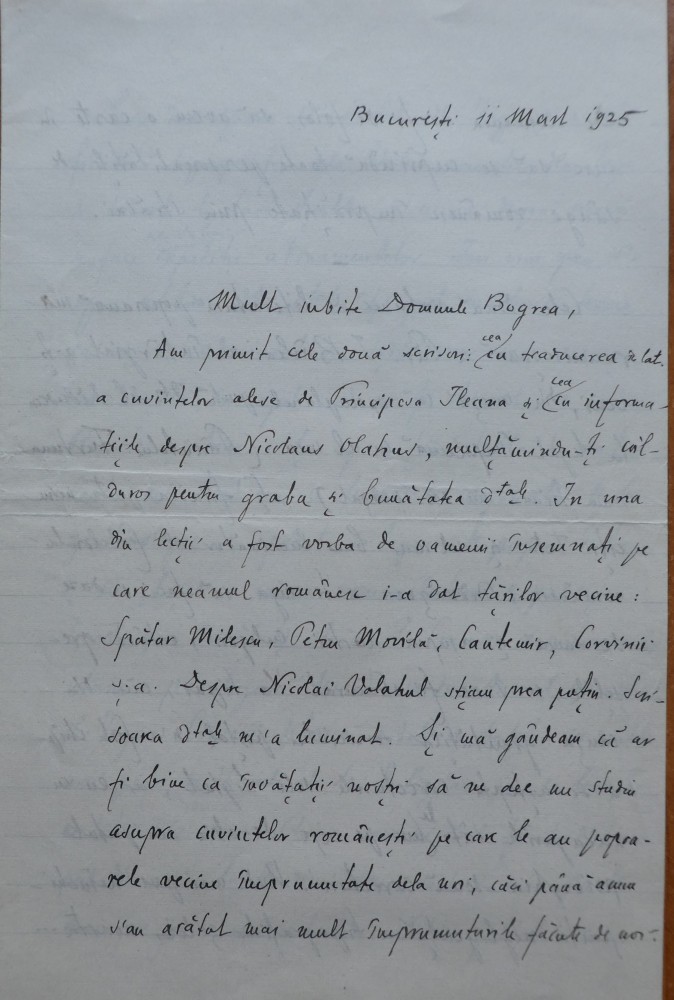 București 11 Mart 1925
Mult iubite Domnule Bogrea,
Am primit cele două scrisori: cea cu traducerea în lat.
a cuvintelor alese de Principesa Ileana și cea cu informa-
țiile despre Nicolaus Olahus, mulțămindu-ți căl-
duros pentru graba și bunătatea dtale. In una
din lecții a fost vorba de oamenii însemnați pe
care neamul românesc i-a dat țărilor vecine:
Spătar Milescu, Petru Movilă, Cantemir, Corvinii
ș.a. Despre Nicolai Valahul știam prea puțin. Scri-
soarea dtale m'a luminat. Și mă gândeam că ar
fi bine ca învățații noștri să ne dee un studiu
asupra cuvintelor românești pe care le au popoa-
rele vecine împrumutate dela noi, căci până acuma
s'au arătat mai mult împrumuturile făcute de noi.